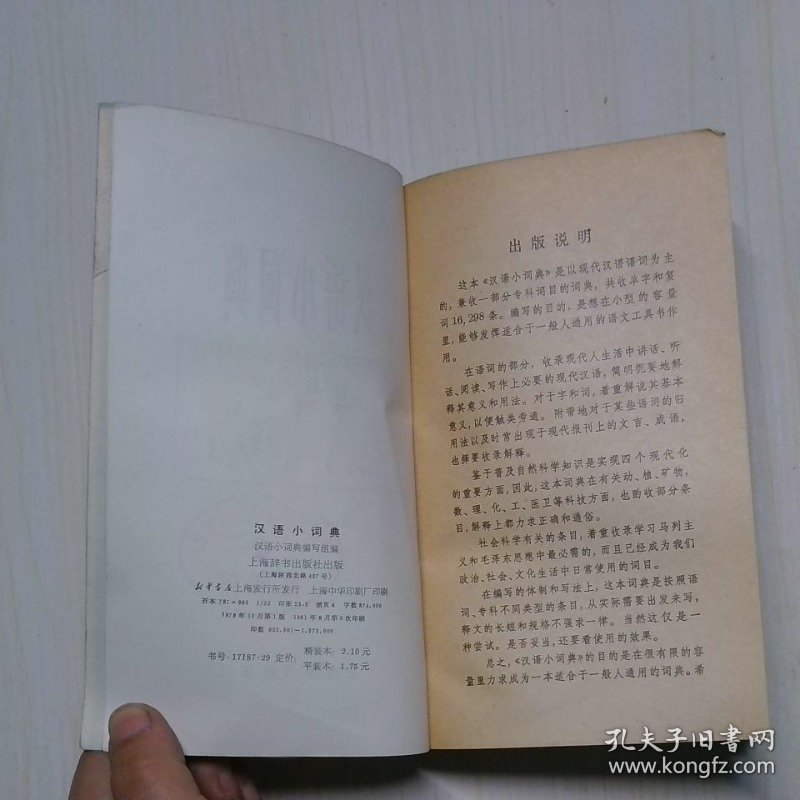 汉语小词典
汉语小词典编写组编
上海辞书出版社出版
（上海陕西北路457号）
新华书店上海发行所发行 上海中华印刷厂印刷
开本 787×960 1/32 印张 23.5 插页 4 字数 874,000
1979年10月第1版 1981年8月第5次印刷
书号：17187·29 定价：
精装本：2.10元
平装本：1.75元
出版说明
这本《汉语小词典》是以现代汉语语词为主
的，兼收一部分专科词目的词典，共收单字和复
词16,298条。编写的目的，是想在小型的容量
里，能够发挥适合于一般人通用的语文工具书作
用。
在语词的部分，收录现代人生活中讲话、听
话、阅读、写作上必要的现代汉语，简明扼要地解
释其意义和用法。对于字和词，着重解说其基本
意义，以便触类旁通。附带地对于某些语词的旧
用法以及时常出现于现代报刊上的文言、成语，
也择要收录解释。
鉴于普及自然科学知识是实现四个现代化
的重要方面，因此，这本词典在有关动、植、矿物，
数、理、化、工、医卫等科技方面，也酌收部分条
目，解释上都力求正确和通俗。
社会科学有关的条目，着重收录学习马列主
义和毛泽东思想中最必需的，而且已经成为我们
政治、社会、文化生活中日常使用的词目。
在编写的体制和写法上，这本词典是按照语
词、专科不同类型的条目，从实际需要出发来写，
释文的长短和规格不强求一律。当然这仅是一
种尝试。是否妥当，还要看使用的效果。
总之，《汉语小词典》的目的是在很有限的容
量里力求成为一本适合于一般人通用的词典。希
孔夫子旧书网
www.kongfz.com